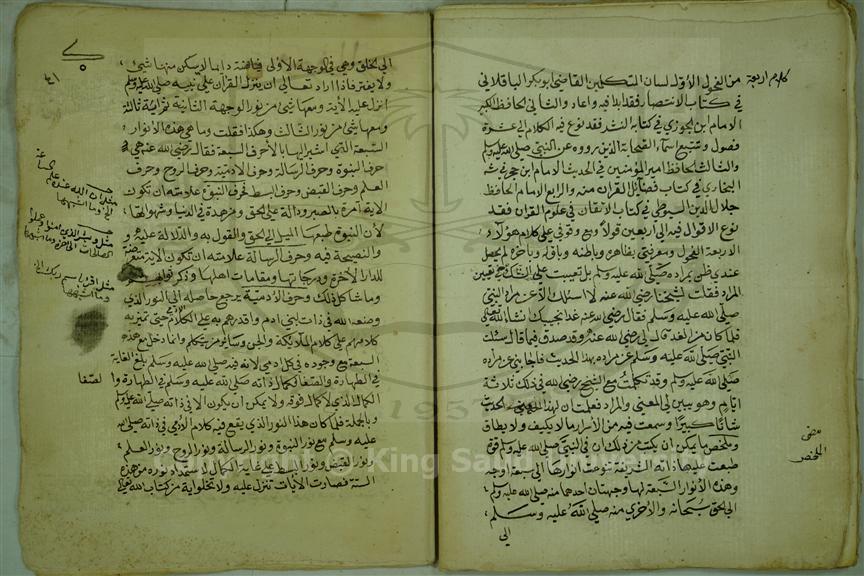 كلام اربعة من الفحول الاول لسان المتكلمين القاضي ابو بكر الباقلاني
في كتاب الانتصار فقد ابلا فيه واعاد والثاني الحافظ الكبير
الامام ابن الجوزي في كتابه النشر فقد نوع فيه الكلام الى عشرة
فصول وتتبع اسماء الصحابة الذين رووه عن النبي صلى الله عليه وسلم
والثالث الحافظ امير المؤمنين في الحديث الامام ابن حجر في شرح
البخاري في كتاب فضائل القران منه والرابع الامام الحافظ
جلال الدين السيوطي في كتاب الاتقان في علوم القران فقد
نوع الاقوال فيه الى اربعين قولا ومع وقوفي على كلام هؤلاء
الاربعة الفحول ومعرفتي بظاهره وباطنه وباوله وباخره لم يحصل
عندي ظن بمراده صلى الله عليه وسلم بل بقيت على الشك في تعيين
المراد فقلت لشيخنا رضي الله عنه لا اسئلك الا عن مراد النبي
صلى الله عليه وسلم فقال رضي الله عنه غدا نجيبك ان شاء الله تعالى
فلما كان من الغد قال لي رضي الله عنه وقد صدق فيما قال سئلت
النبي صلى الله عليه وسلم عن مراده بهذا الحديث فاجابني عن مراده
صلى الله عليه وسلم وقد تكلمت مع الشيخ رضي الله عنه في ذلك ثلاثة
ايام وهو يبين لي المعنى والمراد فعلمت ان لهذا الحديث
شانا كبيرا وسمعت فيه من الاسرار ما لا يكيف ولا يطاق
وملخص ما يمكن ان يكتب من ذلك ان في النبي صلى الله عليه وسلم قوة
طبعت عليها ذاته الشريفة تنوعت انوارها الى سبعة اوجه
وهذه الانوار السبعة لها وجهتان احدهما منه صلى الله عليه وسلم
الى الحق سبحانه والاخرى منه صلى الله عليه وسلم
الى
الى الخلق وهي في الوجهة الاولى فياضة دائما لا يسكن منها شيئ
ولا يفتر فاذا اراد تعالى ان ينزل القران على نبيه صلى الله عليه وسلم
انزل عليه الاية ومعها شيئ من نور الوجهة الثانية ثم اية ثالثة
ومعها شيئ من نور الثالث وهكذا فقلت وما هي هذه الانوار
السبعة التي اشير اليها بالاحرف السبعة فقال رضي الله عنه هي
حرف النبوة وحرف الرسالة وحرف الادمية وحرف الروح وحرف
العلم وحرف القبض وحرف البسط فحرف النبوة علامته ان تكون
الاية امرة بالصبر ودالة على الحق ومزهدة في الدنيا وشهواتها
لان النبوة طبعها الميل الى الحق والقول به والدلالة عليه
والنصيحة فيه وحرف الرسالة علامته ان تكون الاية
للدار الاخرة ودرجاتها ومقامات اهلها وذكر ثوابهم
وما شاكل ذلك وحرف الادمية يرجع حاصله الى النور الذي
وضعه الله في ذات بني ادم واقدرهم به على الكلام حتى تميز به
كلامهم على كلام الملايكة والجن وساير من يتكلم وانما دخل مع هذه
السبعة مع وجوده في كل ادمي لانه فيه صلى الله عليه وسلم بلغ الغاية
في الطهارة والصفا لكمال ذاته صلى الله عليه وسلم في الطهارة والصفا
الكمال الذي لا كمال فوقه ولا يمكن ان يكون الا في ذاته صلى الله عليه وسلم
وبالجملة فلما كان هذا النور الذي يقع فيه كلام الادمي في ذاته صلى الله
عليه وسلم مع نور النبوة ونور الرسالة ونور الروح ونور العلم
ونور القبض ونور البسط على غاية الكمال
الستة فصارت الايات تنزل عليه ولا تخلو اية من كتاب الله تعالى
© King Saud University
1957